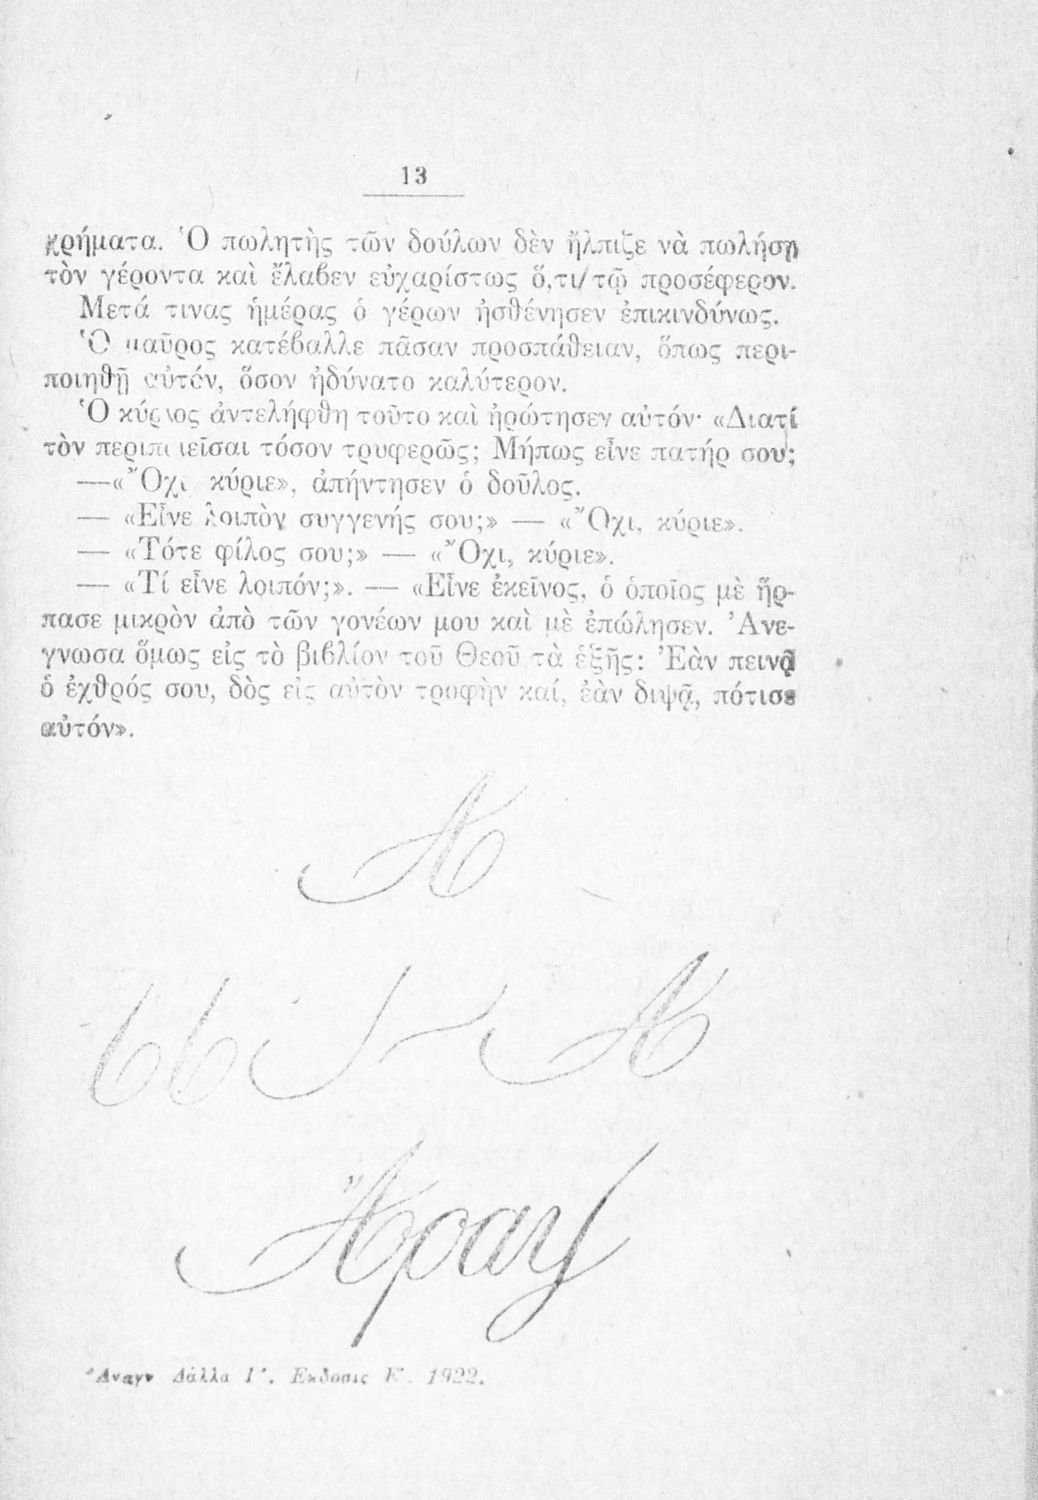 13
χρήματα. Ὁ πωλητὴς τῶν δούλων δὲν ἤλπιζε νὰ πωλήσῃ
τὸν γέροντα καὶ ἔλαβεν εὐχαρίστως ὅ,τι τῷ προσέφερον.
Μετά τινας ἡμέρας ὁ γέρων ἠσθένησεν ἐπικινδύνως.
Ὁ μαῦρος κατέβαλλε πᾶσαν προσπάθειαν, ὅπως περι-
ποιηθῇ αὐτόν, ὅσον ἠδύνατο καλύτερον.
Ὁ κύριος ἀντελήφθη τοῦτο καὶ ἠρώτησεν αὐτόν· «Διατί
τὸν περιποιεῖσαι τόσον τρυφερῶς; Μήπως εἶνε πατήρ σου;
—«Ὄχι κύριε», ἀπήντησεν ὁ δοῦλος.
— «Εἶνε λοιπὸν συγγενής σου;» — «Ὄχι, κύριε».
— «Τότε φίλος σου;» — «Ὄχι, κύριε».
— «Τί εἶνε λοιπόν;». — «Εἶνε ἐκεῖνος, ὁ ὁποῖος μὲ ἥρ-
πασε μικρὸν ἀπὸ τῶν γονέων μου καὶ μὲ ἐπώλησεν. Ἀνε-
γνωσα ὅμως εἰς τὸ βιβλίον τοῦ Θεοῦ τὰ ἑξῆς: Ἐὰν πεινᾷ
ὁ ἐχθρός σου, δὸς εἰς αὐτὸν τροφὴν καί, ἐὰν διψᾷ, πότισε
αὐτόν».
Ἀναγν Δάλλα Γ'. Εκδοσις Ε'. 1922.